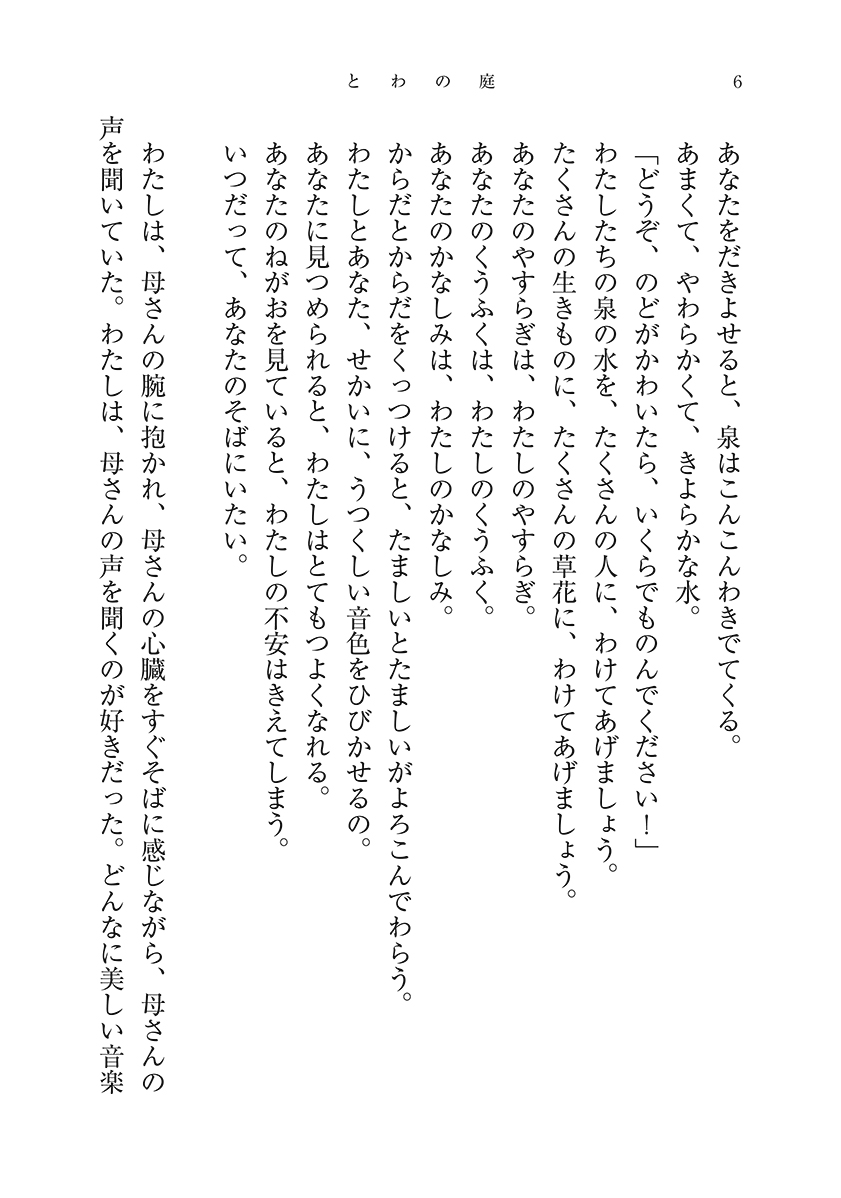 6
とわの庭
あなたをだきよせると、泉はこんこんわきでてくる。
あまくて、やわらかくて、きよらかな水。
「どうぞ、のどがかわいたら、いくらでものんでください！」
わたしたちの泉の水を、たくさんの人に、わけてあげましょう。
たくさんの生きものに、たくさんの草花に、わけてあげましょう。
あなたのやすらぎは、わたしのやすらぎ。
あなたのくうふくは、わたしのくうふく。
あなたのかなしみは、わたしのかなしみ。
からだとからだをくっつけると、たましいとたましいがよろこんでわらう。
わたしとあなた、せかいに、うつくしい音色をひびかせるの。
あなたに見つめられると、わたしはとてもつよくなれる。
あなたのねがおを見ていると、わたしの不安はきえてしまう。
いつだって、あなたのそばにいたい。
わたしは、母さんの腕に抱かれ、母さんの心臓をすぐそばに感じながら、母さんの
声を聞いていた。わたしは、母さんの声を聞くのが好きだった。どんなに美しい音楽